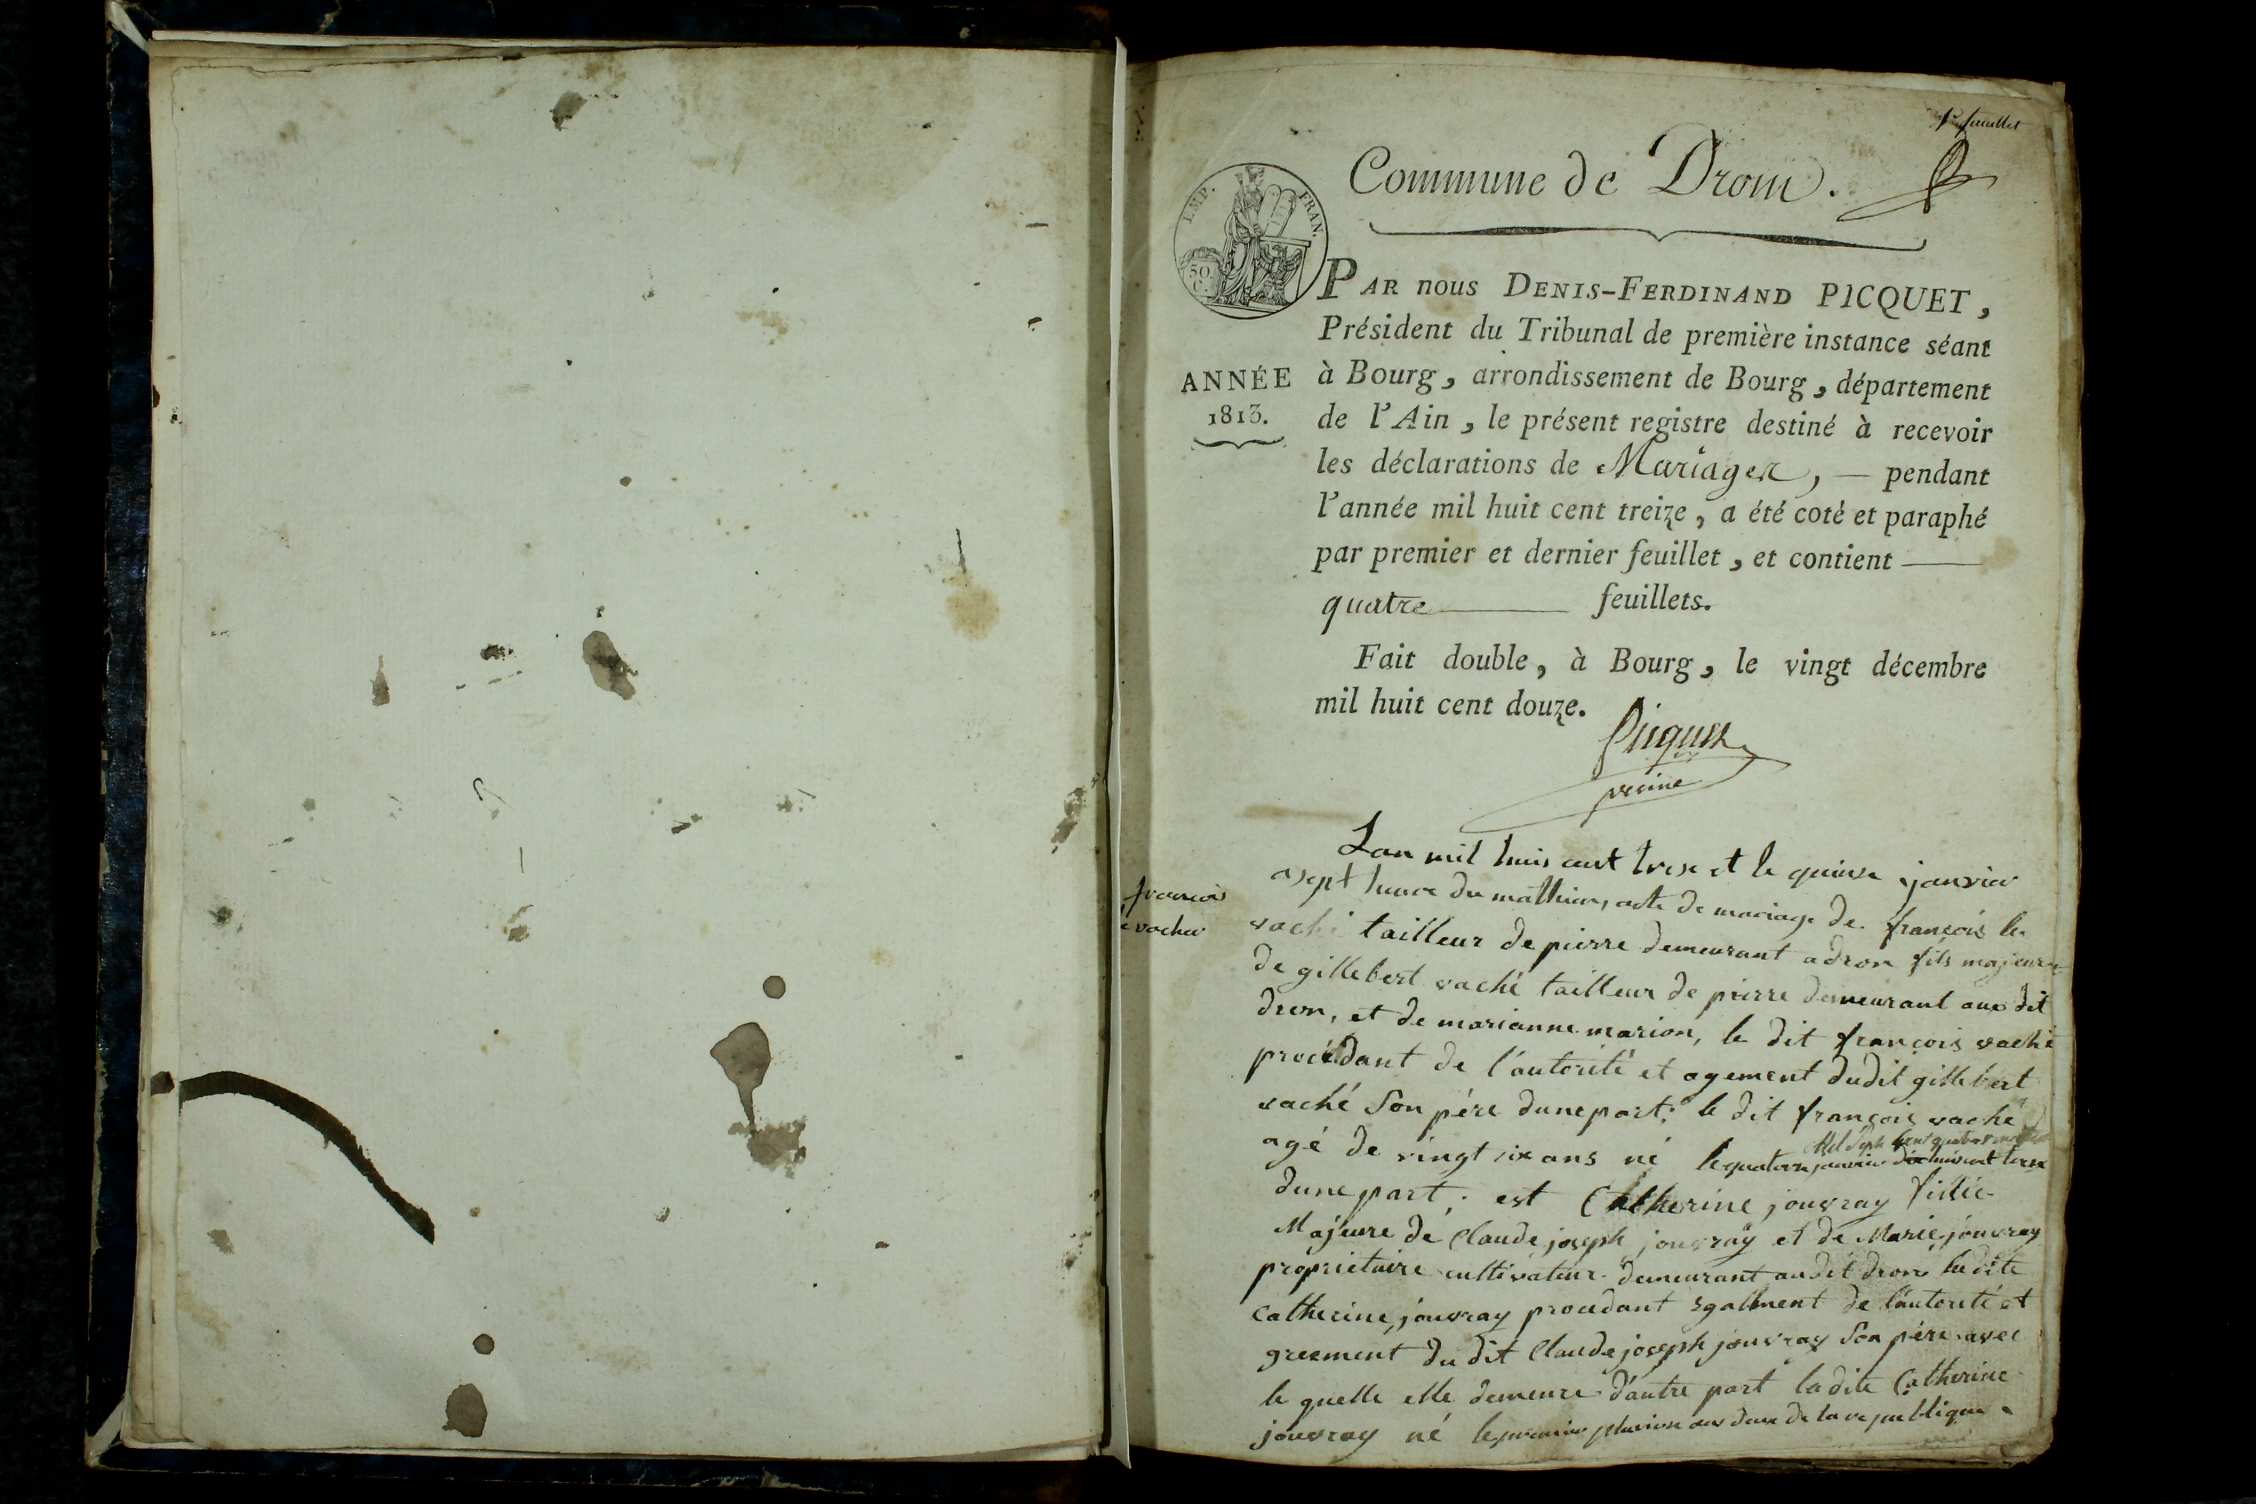 1er feuillet
Commune de Drom.
IMP. FRAN.
50 C.
PAR nous DENIS-FERDINAND PICQUET,
Président du Tribunal de première instance séant
à Bourg, arrondissement de Bourg, département
de l'Ain, le présent registre destiné à recevoir
les déclarations de Mariages, — pendant
l'année mil huit cent treize, a été coté et paraphé
par premier et dernier feuillet, et contient —
quatre — feuillets.
ANNÉE
1813.
Fait double, à Bourg, le vingt décembre
mil huit cent douze.
Picquet
francois
vacher
Lan mil huis cent trese et le quinse janvier
a sept heure du mathin, acte de mariage de francois le
vaché tailleur de pierre demeurant a dron fils majeur
de gillebert vaché tailleur de pierre demeurant au dit
dron, et de marianne marion, le dit francois vaché
procédant de l'autorité et agement dudit gillebert
vaché son pére dune part: le dit francois vaché
agé de vingt six ans né le quatorse janvier
dune part. est Catherine jouvray fillie
Majeure de Claude joseph jouvray et de Marie jouvray
propriétaire cultivateur demeurant au dit dron ladite
catherine jouvray procedant egalment de l'autorité et
greement du dit Claude joseph jouvray son pére avec
le quelle elle demeure d'autre part ladite Catherine
jouvray né le premier pluviose an deux de la republique